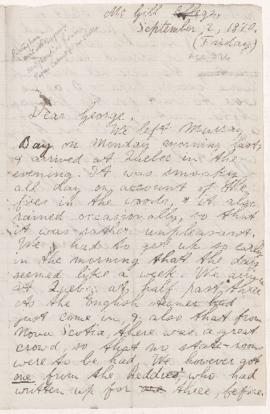 McGill College,
September 2, 1870.
(Friday)
Dear George,
We left Murray
Bay on Monday morning last
& arrived at Quebec in the
evening. It was smoky
all day on account of the
fires in the woods, & it also
rained occasionally, so that
it was rather unpleasant.
We had to get up so early
in the morning that the day
seemed like a week. We arrived
at Quebec at half past three
As the English steamer had
just come in, & also that from
Nova Scotia, there was a great
crowd, so that no state-rooms
were to be had. We however got
one from the
who had
written up for three, before